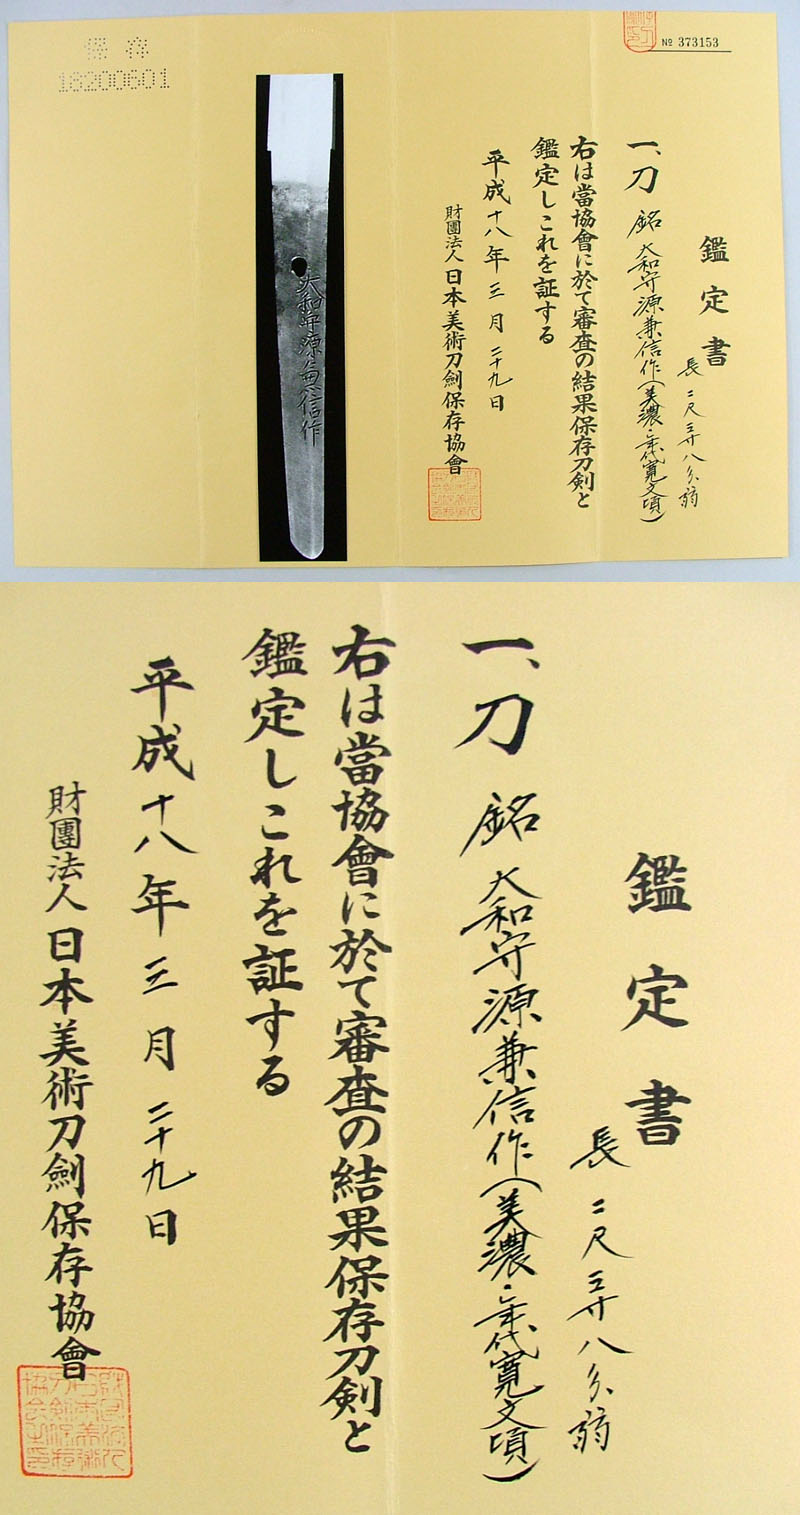 保存
18200601
№ 373153
鑑定書
長 二尺三寸八分弱
一、刀 銘 大和守源兼信作(美濃・年代寛文頃)
右は當協會に於て審査の結果保存刀剣と
鑑定しこれを証する
平成十八年三月二十九日
財團法人日本美術刀劍保存協會
大和守源兼信作
鑑定書
長 二尺三寸八分弱
一、刀 銘 大和守源兼信作(美濃・年代寛文頃)
右は當協會に於て審査の結果保存刀剣と
鑑定しこれを証する
平成十八年三月二十九日
財團法人日本美術刀劍保存協會